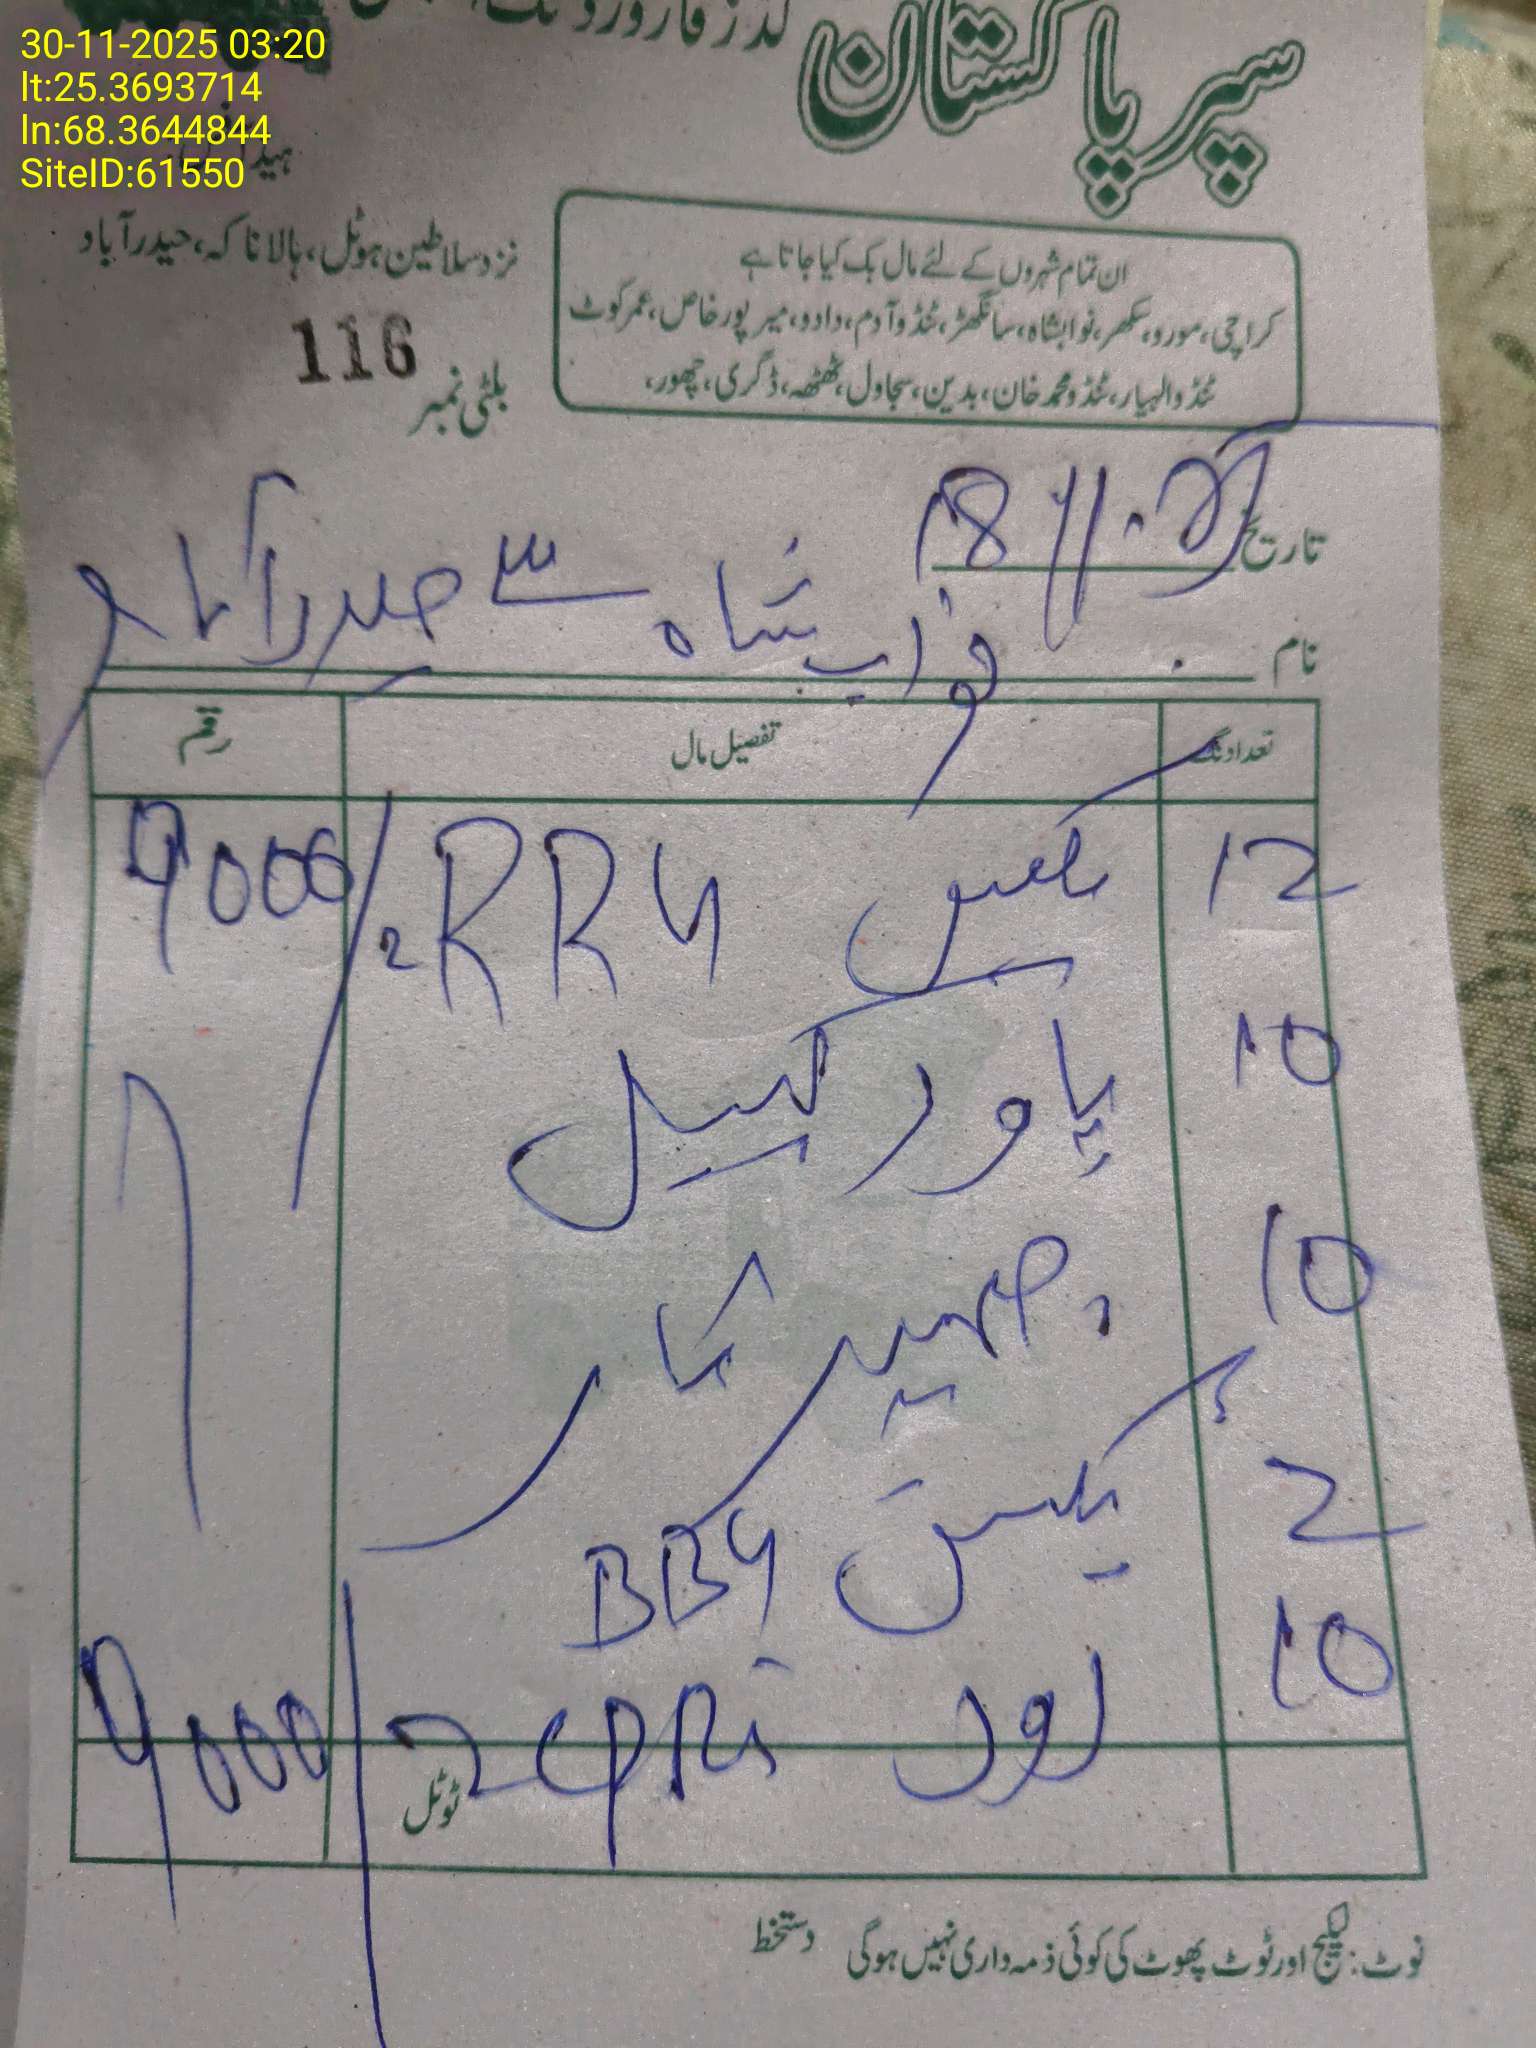 30-11-2025 03:20
lt:25.3693714
ln:68.3644844
SiteID:61550
سپر پاکستان گڈز فارورڈنگ
ہیڈ آفس
نزد سلاطین ہوٹل، ہالا ناکہ، حیدرآباد
ان تمام شہروں کے لئے مال بک کیا جاتا ہے
کراچی، مورو، سکھر، نوابشاہ، سانگھڑ، ٹنڈوآدم، دادو، میرپورخاص، عمرکوٹ
ٹنڈوالہیار، ٹنڈومحمدخان، بدین، سجاول، ٹھٹھہ، ڈگری، چھور،
بلٹی نمبر 116
تاریخ 18/11
نام نواب شاہ سے حیدرآباد
تعداد نگ تفصیل مال رقم
12 بکس RRU 9000/
10 پاور کیبل
10
2 بکس BBU
10 CPRI
ٹوٹل 9000/
نوٹ: لیکیج اور ٹوٹ پھوٹ کی کوئی ذمہ داری نہیں ہوگی دستخط